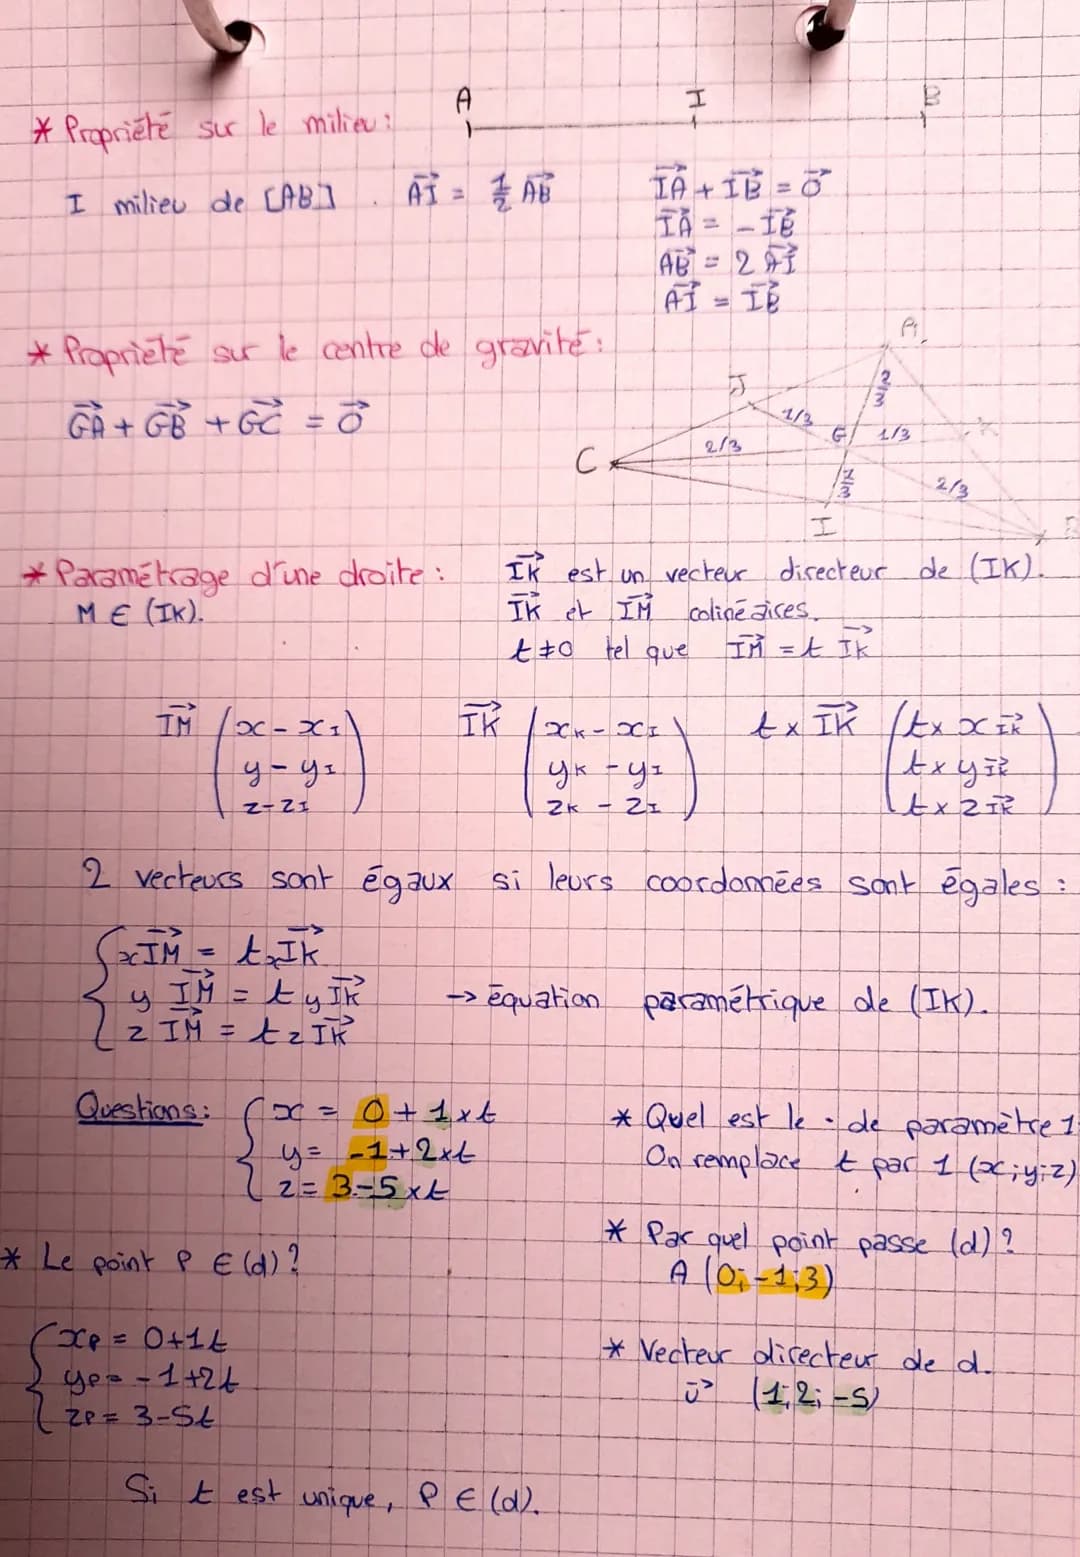 A I B
* Propriété sur le milieu :
I milieu de [AB] . AI⃗ = 1/2 AB⃗
IA⃗ + IB⃗ = 0⃗
IA⃗ = - IB⃗
AB⃗ = 2 AI⃗
AI⃗ = IB⃗
* Propriété sur le centre de gravité :
GA⃗ + GB⃗ + GC⃗ = 0⃗
A
J 2/3
1/3
G 1/3
2/3
C
1/3 2/3
I
* Paramétrage d'une droite :
M ∈ (IK).
IK⃗ est un vecteur directeur de (IK).
IK⃗ et IM⃗ colinéaires.
t ≠ 0 tel que IM⃗ = t IK⃗
IM⃗ (x - xI
y - yI
z - zI)
IK⃗ (xK - xI
yK - yI
zK - zI)
t x IK⃗ (t x x IK⃗
t x y IK⃗
t x z IK⃗)
2 vecteurs sont égaux si leurs coordonnées sont égales :
{ x IM⃗ = t x IK⃗
y IM⃗ = t y IK⃗
z IM⃗ = t z IK⃗
→ équation paramétrique de (IK).
Questions : { x = 0 + 1 x t
y = -1 + 2 x t
z = 3 - 5 x t
* Quel est le · de paramètre 1
On remplace t par 1 (x ; y ; z)
* Par quel point passe (d) ?
A (0 ; -1 ; 3)
* Le point P ∈ (d) ?
{ xP = 0 + 1t
yP = -1 + 2t
zP = 3 - 5t
* Vecteur directeur de d.
u⃗ (1 ; 2 ; -5)
Si t est unique, P ∈ (d).